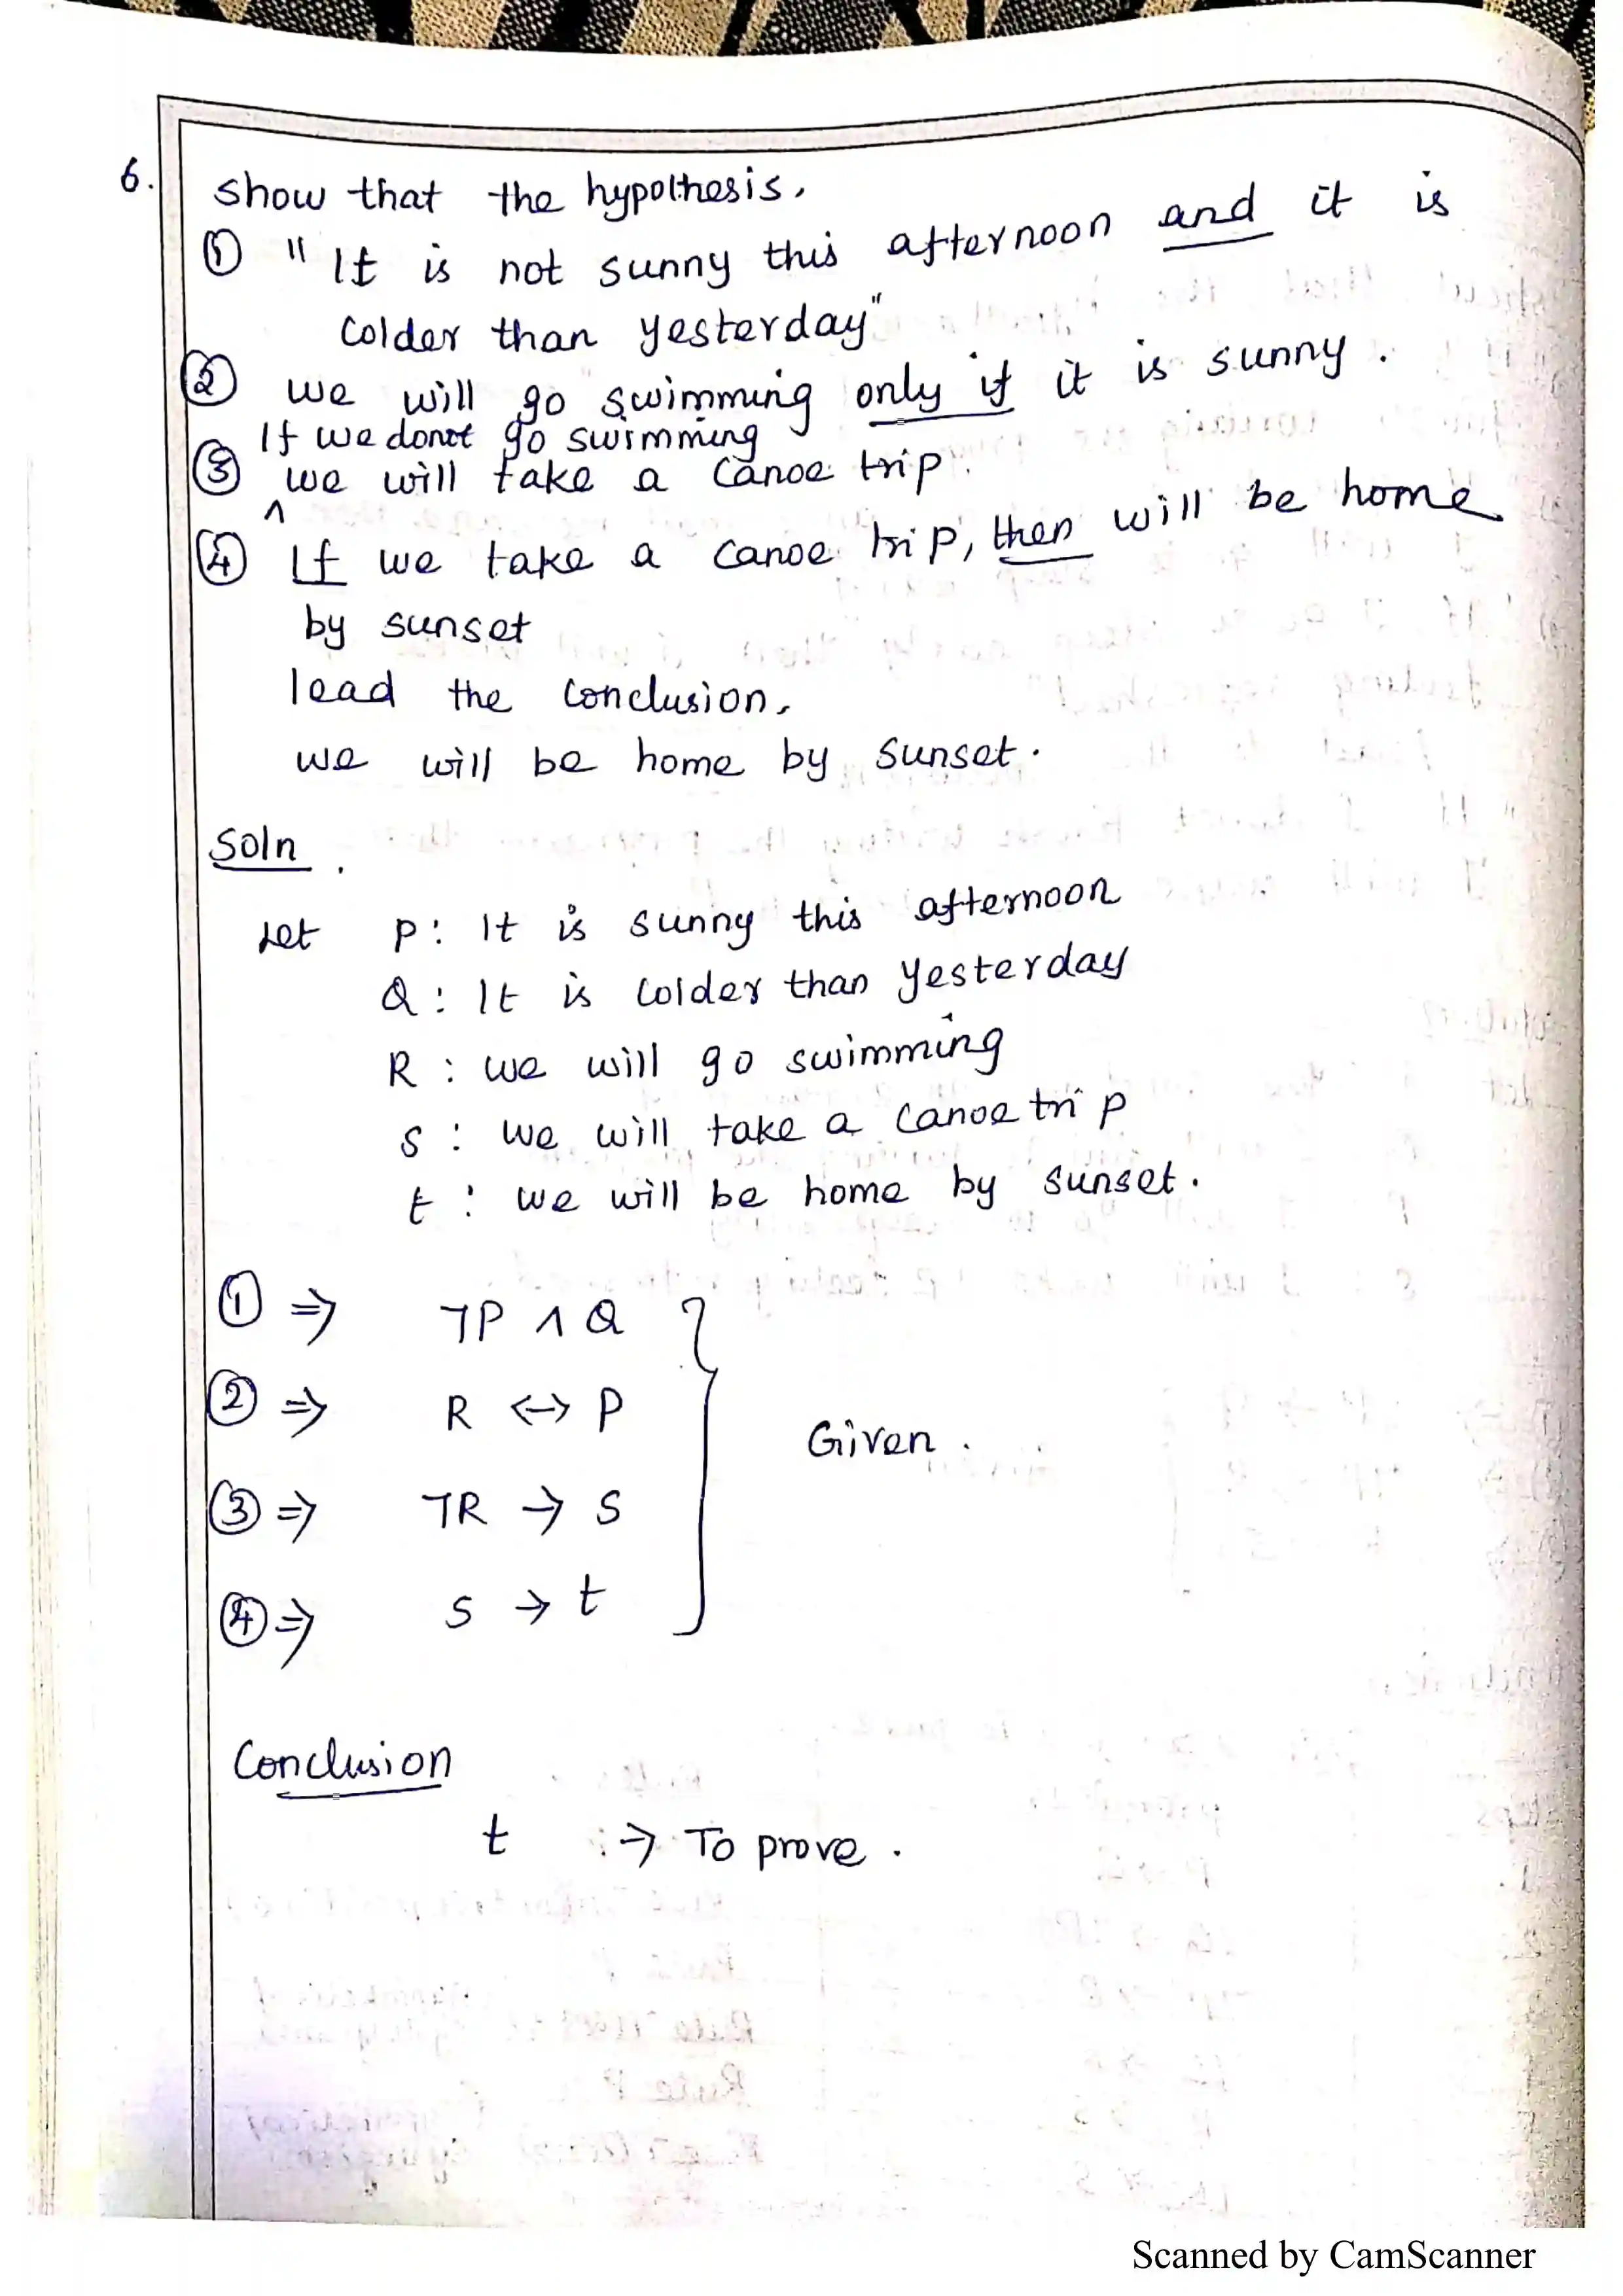 6. Show that the hypothesis,
① "It is not sunny this afternoon and it is
colder than yesterday"
② we will go swimming only if it is sunny.
If we donot go swimming
③ ^ we will take a canoe trip.
④ If we take a canoe trip, then will be home
by sunset
lead the conclusion,
we will be home by sunset.
Soln.
Let P: It is sunny this afternoon
Q: It is colder than yesterday
R: we will go swimming
S: we will take a canoe trip
t: we will be home by sunset.
① ⇒ ¬P ∧ Q
② ⇒ R ↔ P
Given.
③ ⇒ ¬R → S
④ ⇒ S → t
Conclusion
t :→ To prove.
Scanned by CamScanner